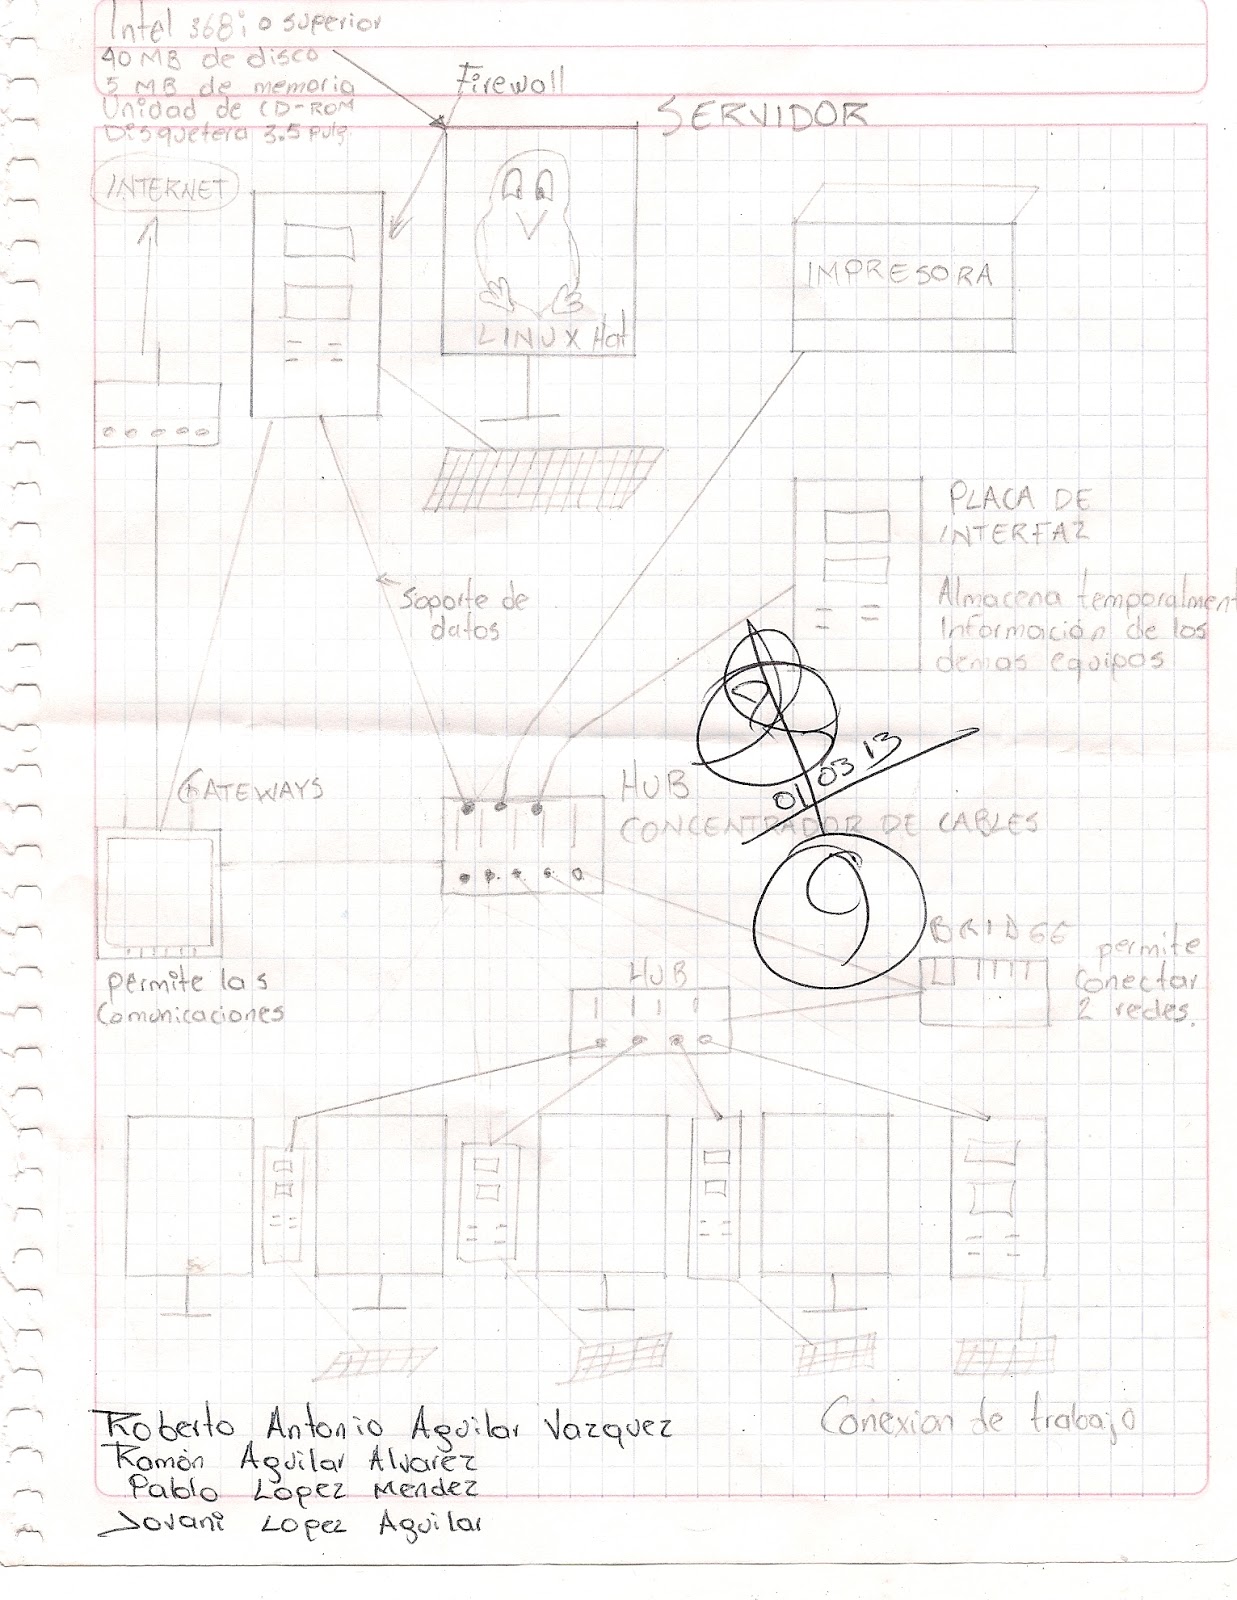 Intel 368i o superior
40 MB de disco
5 MB de memoria
Unidad de CD-ROM
Disquetera 3.5 pulg
Firewall
SERVIDOR
INTERNET
LINUX Hat
IMPRESORA
PLACA DE
INTERFAZ
Almacena temporalment
Información de los
demas equipos
Soporte de
datos
GATEWAYS
HUB
CONCENTRADOR DE CABLES
01 03 13
permite las
Comunicaciones
HUB
BRIDGE
permite
conectar
2 redes.
Conexion de trabajo
Roberto Antonio Aguilar Vazquez
Ramón Aguilar Alvarez
Pablo Lopez Mendez
Jovani Lopez Aguilar